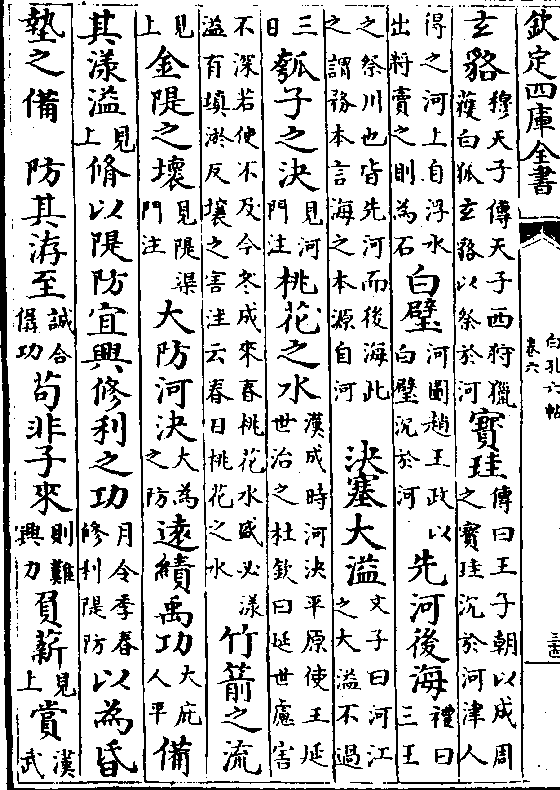 欽定四庫全書
白孔六帖
卷六
玄貉穆天子傳天子西狩獵獲白狐玄貉以祭於河寳珪傳曰王子朝以成周之寳珪沉於河津人
得之河上自浮水出将賣之則為石白璧河圖趙王政以白璧沉於河先河後海禮曰三王
之祭川也皆先河而後海此之謂務本言海之本源自河決塞大溢文子曰河江之大溢不過
三日瓠子之決見河門注桃花之水漢成時河決平原使王延世治之杜欽曰延世處害
不深若使不及今冬成來春桃花水盛必漾溢有填淤反壤之害注云春日桃花之水竹箭之流
見上金隄之壞見隄渠門注大防河決大為之防遠績禹功大庇人平備
其漾溢見上脩以隄防宜興修利之功月令季春修利隄防以為昏
墊之備防其洊至誠合僝功苟非子來則難興力負薪見上賞漢武